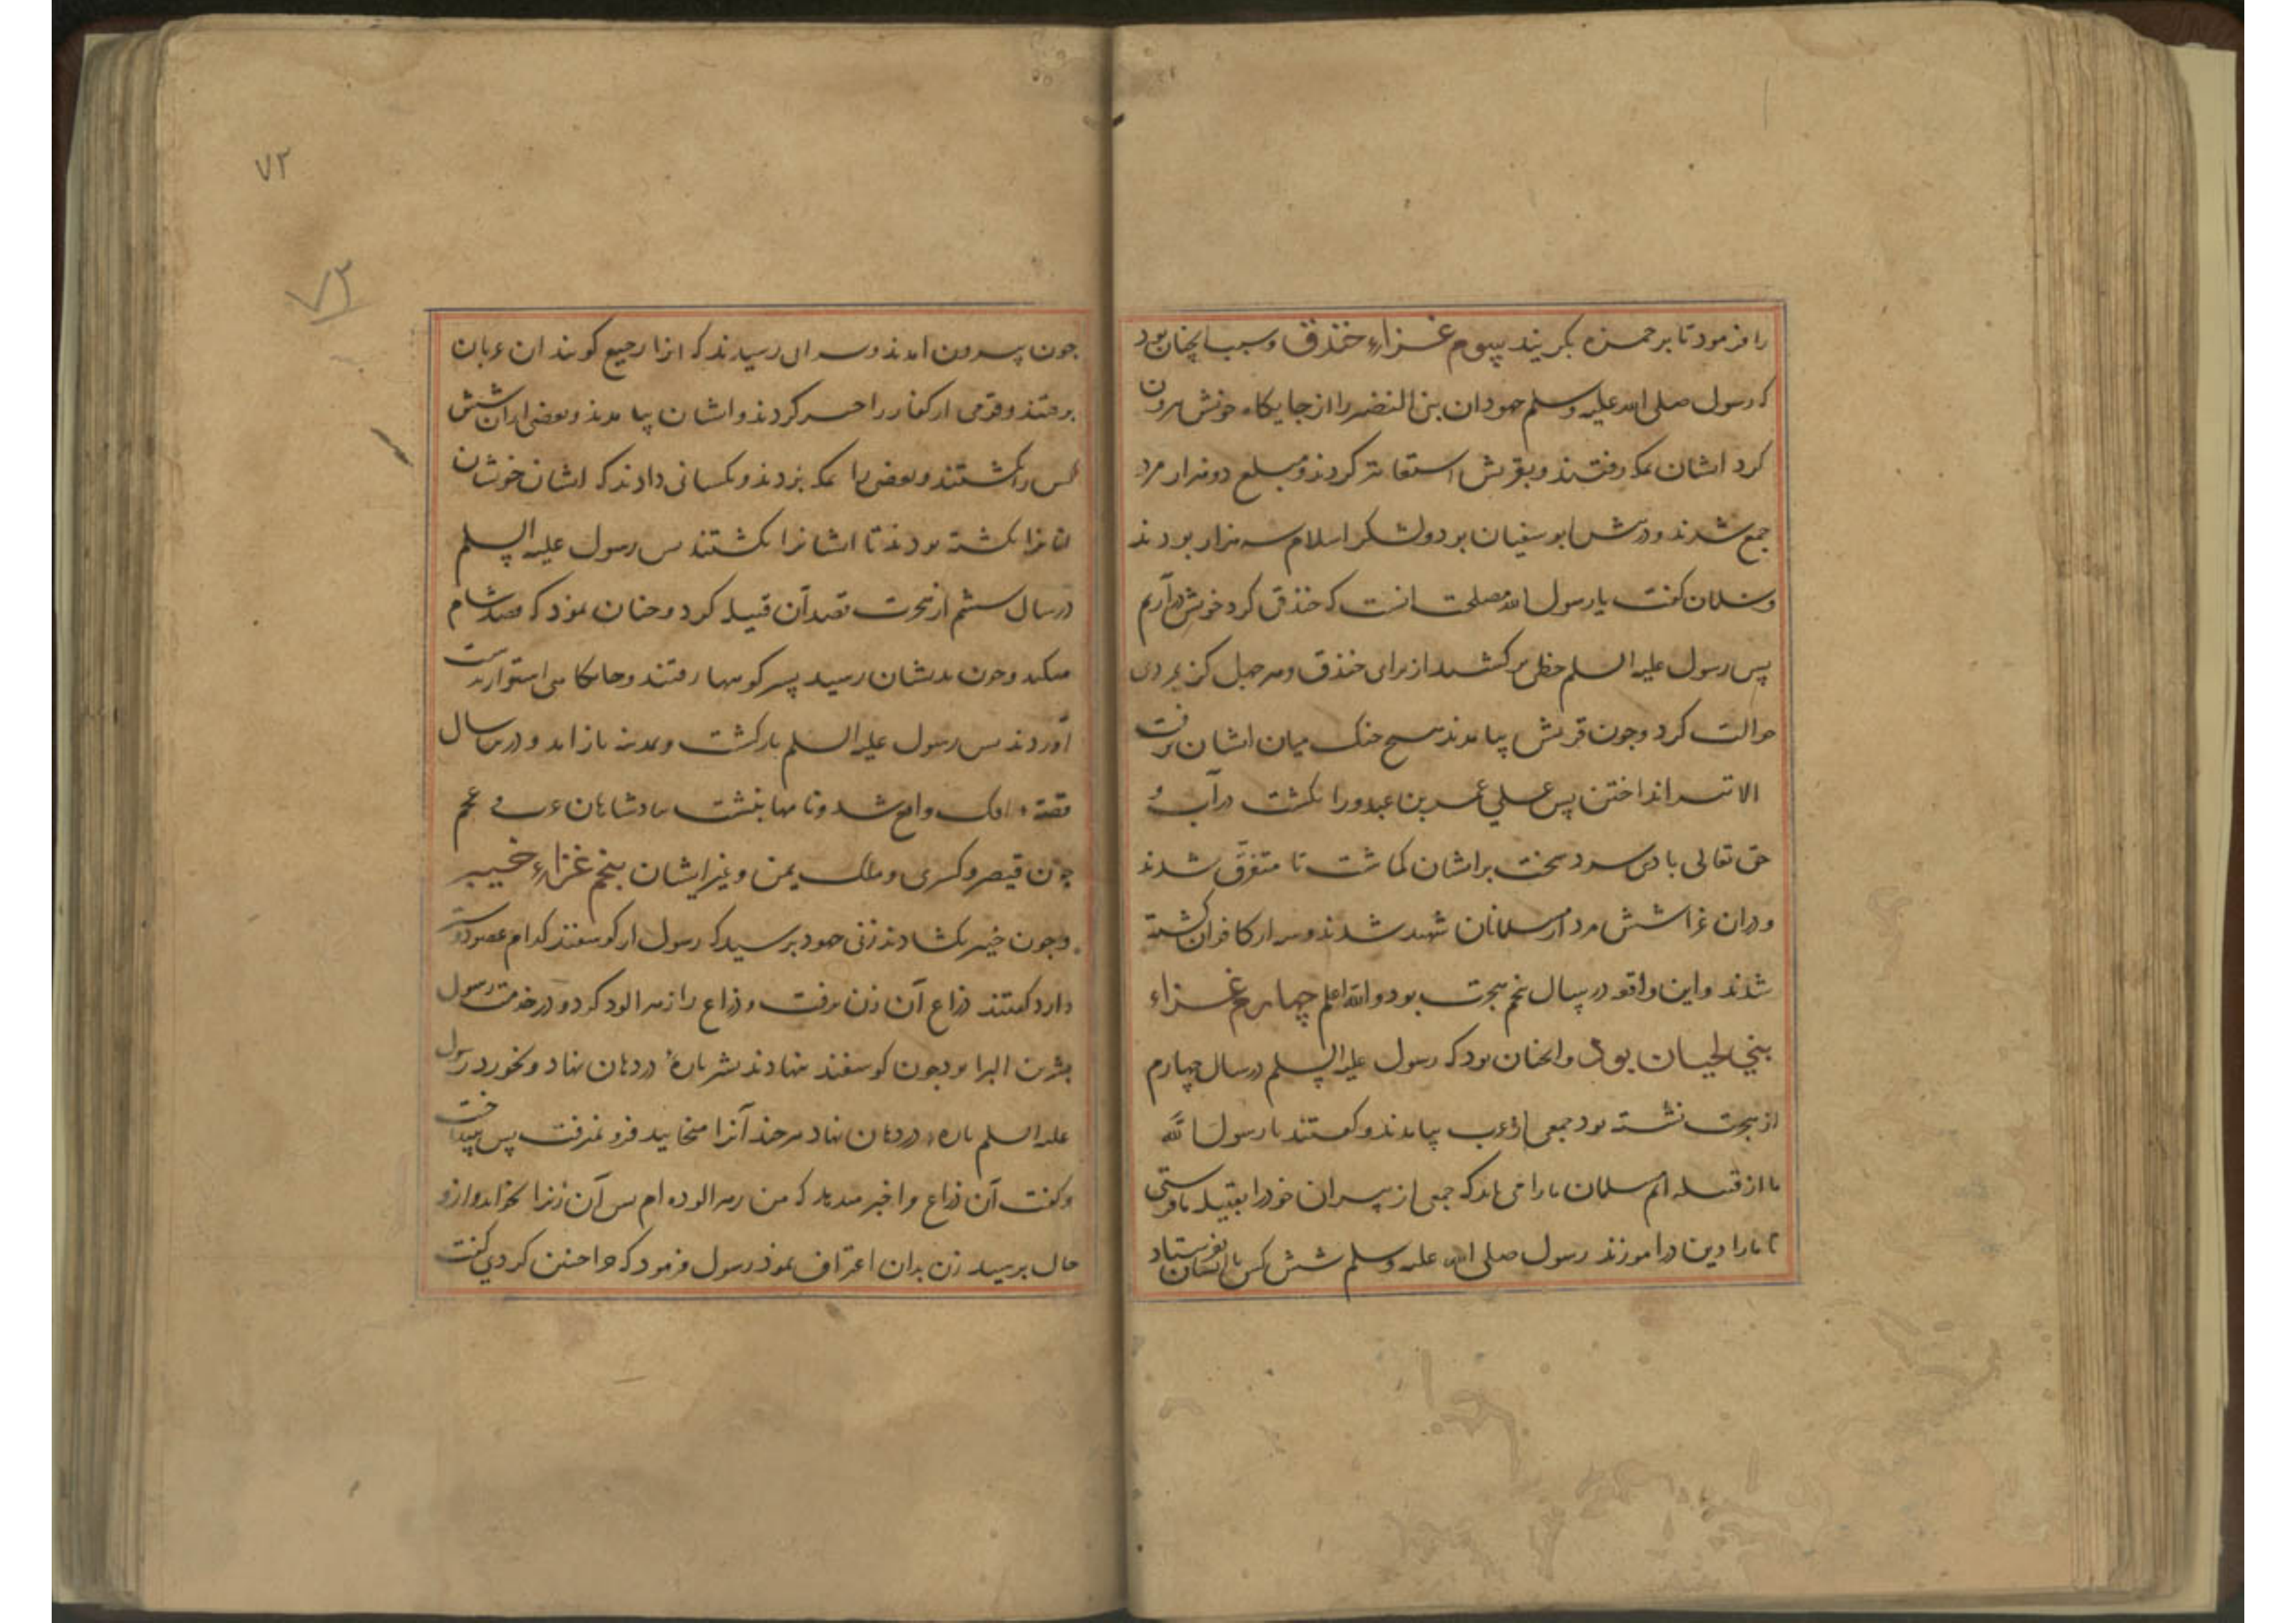 را فرمود تا بر حمزه بکریند سیوم غزاء خندق و سبب انچنان بود
که رسول صلی الله علیه وسلم جهودان بنی النضیر را از جایکاه خویش بیرون
کرد ایشان بمکه رفتند و بقریش استعانت کردند و مبلغ دو هزار مرد
جمع شدند و رئیس ابو سفیان بود و لشکر اسلام سه هزار بودند
و سلمان کفت یا رسول الله مصلحت انست که خندقی کرد خویش درآریم
پس رسول علیه السلم خطی برکشید از برای خندق و هر چهل کز بر دی
حوالت کرد و چون قریش بیامدند هیچ جنک میان ایشان نرفت
الا تیر انداختن پس علی عمر بن عبدود را بکشت در آب و
حق تعالی بادی سرد سخت بر ایشان کماشت تا متفرق شدند
و دران غزا شش مرد از مسلمانان شهید شدند و سه از کافران کشته
شدند و این واقعه در سال پنجم هجرت بود والله اعلم چهارم غزاء
بنی لحیان بود و انچنان بود که رسول علیه السلم در سال چهارم
از هجرت نشسته بود جمعی از عرب بیامدند و کفتند یا رسول الله
ما از قبیله ایم مسلمان ما را می باید که جمعی از پسران خود را بقبیله ما فرستی
تا ما را دین درآموزند رسول صلی الله علیه وسلم شش کس با ایشان بفرستاد
۷۲
۷۳
چون بیرون آمدند و بسر آبی رسیدند که آنرا رجیع کویند آن عربان
برفتند و قومی از کفار را خبر کردند و ایشان بیامدند و بعضی ازان شش
کس را بکشتند و بعضی را بمکه بردند و بکسانی دادند که ایشان خویشان
انانرا بکشته بودند تا ایشانرا بکشتند پس رسول علیه السلم
در سال ششم از هجرت قصد آن قبیله کرد و چنان نمود که قصد شام
میکند و چون بدیشان رسید بسر کوهها رفتند و جایکاهی استوار بدست
آوردند پس رسول علیه السلم بازکشت و بمدینه باز آمد و درین سال
قصه افک واقع شد و نامها بنبشت بپادشاهان عرب و عجم
چون قیصر و کسری و ملک یمن و غیر ایشان پنجم غزاء خیبر
و چون خیبر بکشادند زنی جهود بپرسید که رسول از کوسفند کدام عضو دوست
دارد کفتند ذراع آن زن برفت و ذراع را زهر الود کرد و در خدمت رسول
بشر بن البرا بود چون کوسفند بنهادند بشر پارهٔ در دهان نهاد و بخورد رسول
علیه السلم پاره در دهان نهاد هر چند آنرا میخایید فرو نمیرفت پس بینداخت
و کفت آن ذراع مرا خبر میدهد که من زهر الوده ام پس آن زنرا بخواند و ازو
حال بپرسید زن بدان اعتراف نمود رسول فرمود که چرا چنین کردی کفت